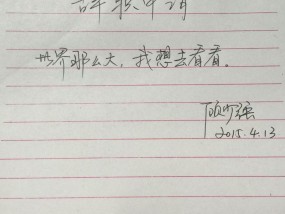 辞职申请
世界那么大，我想去看看。
顾少强
2015.4.13